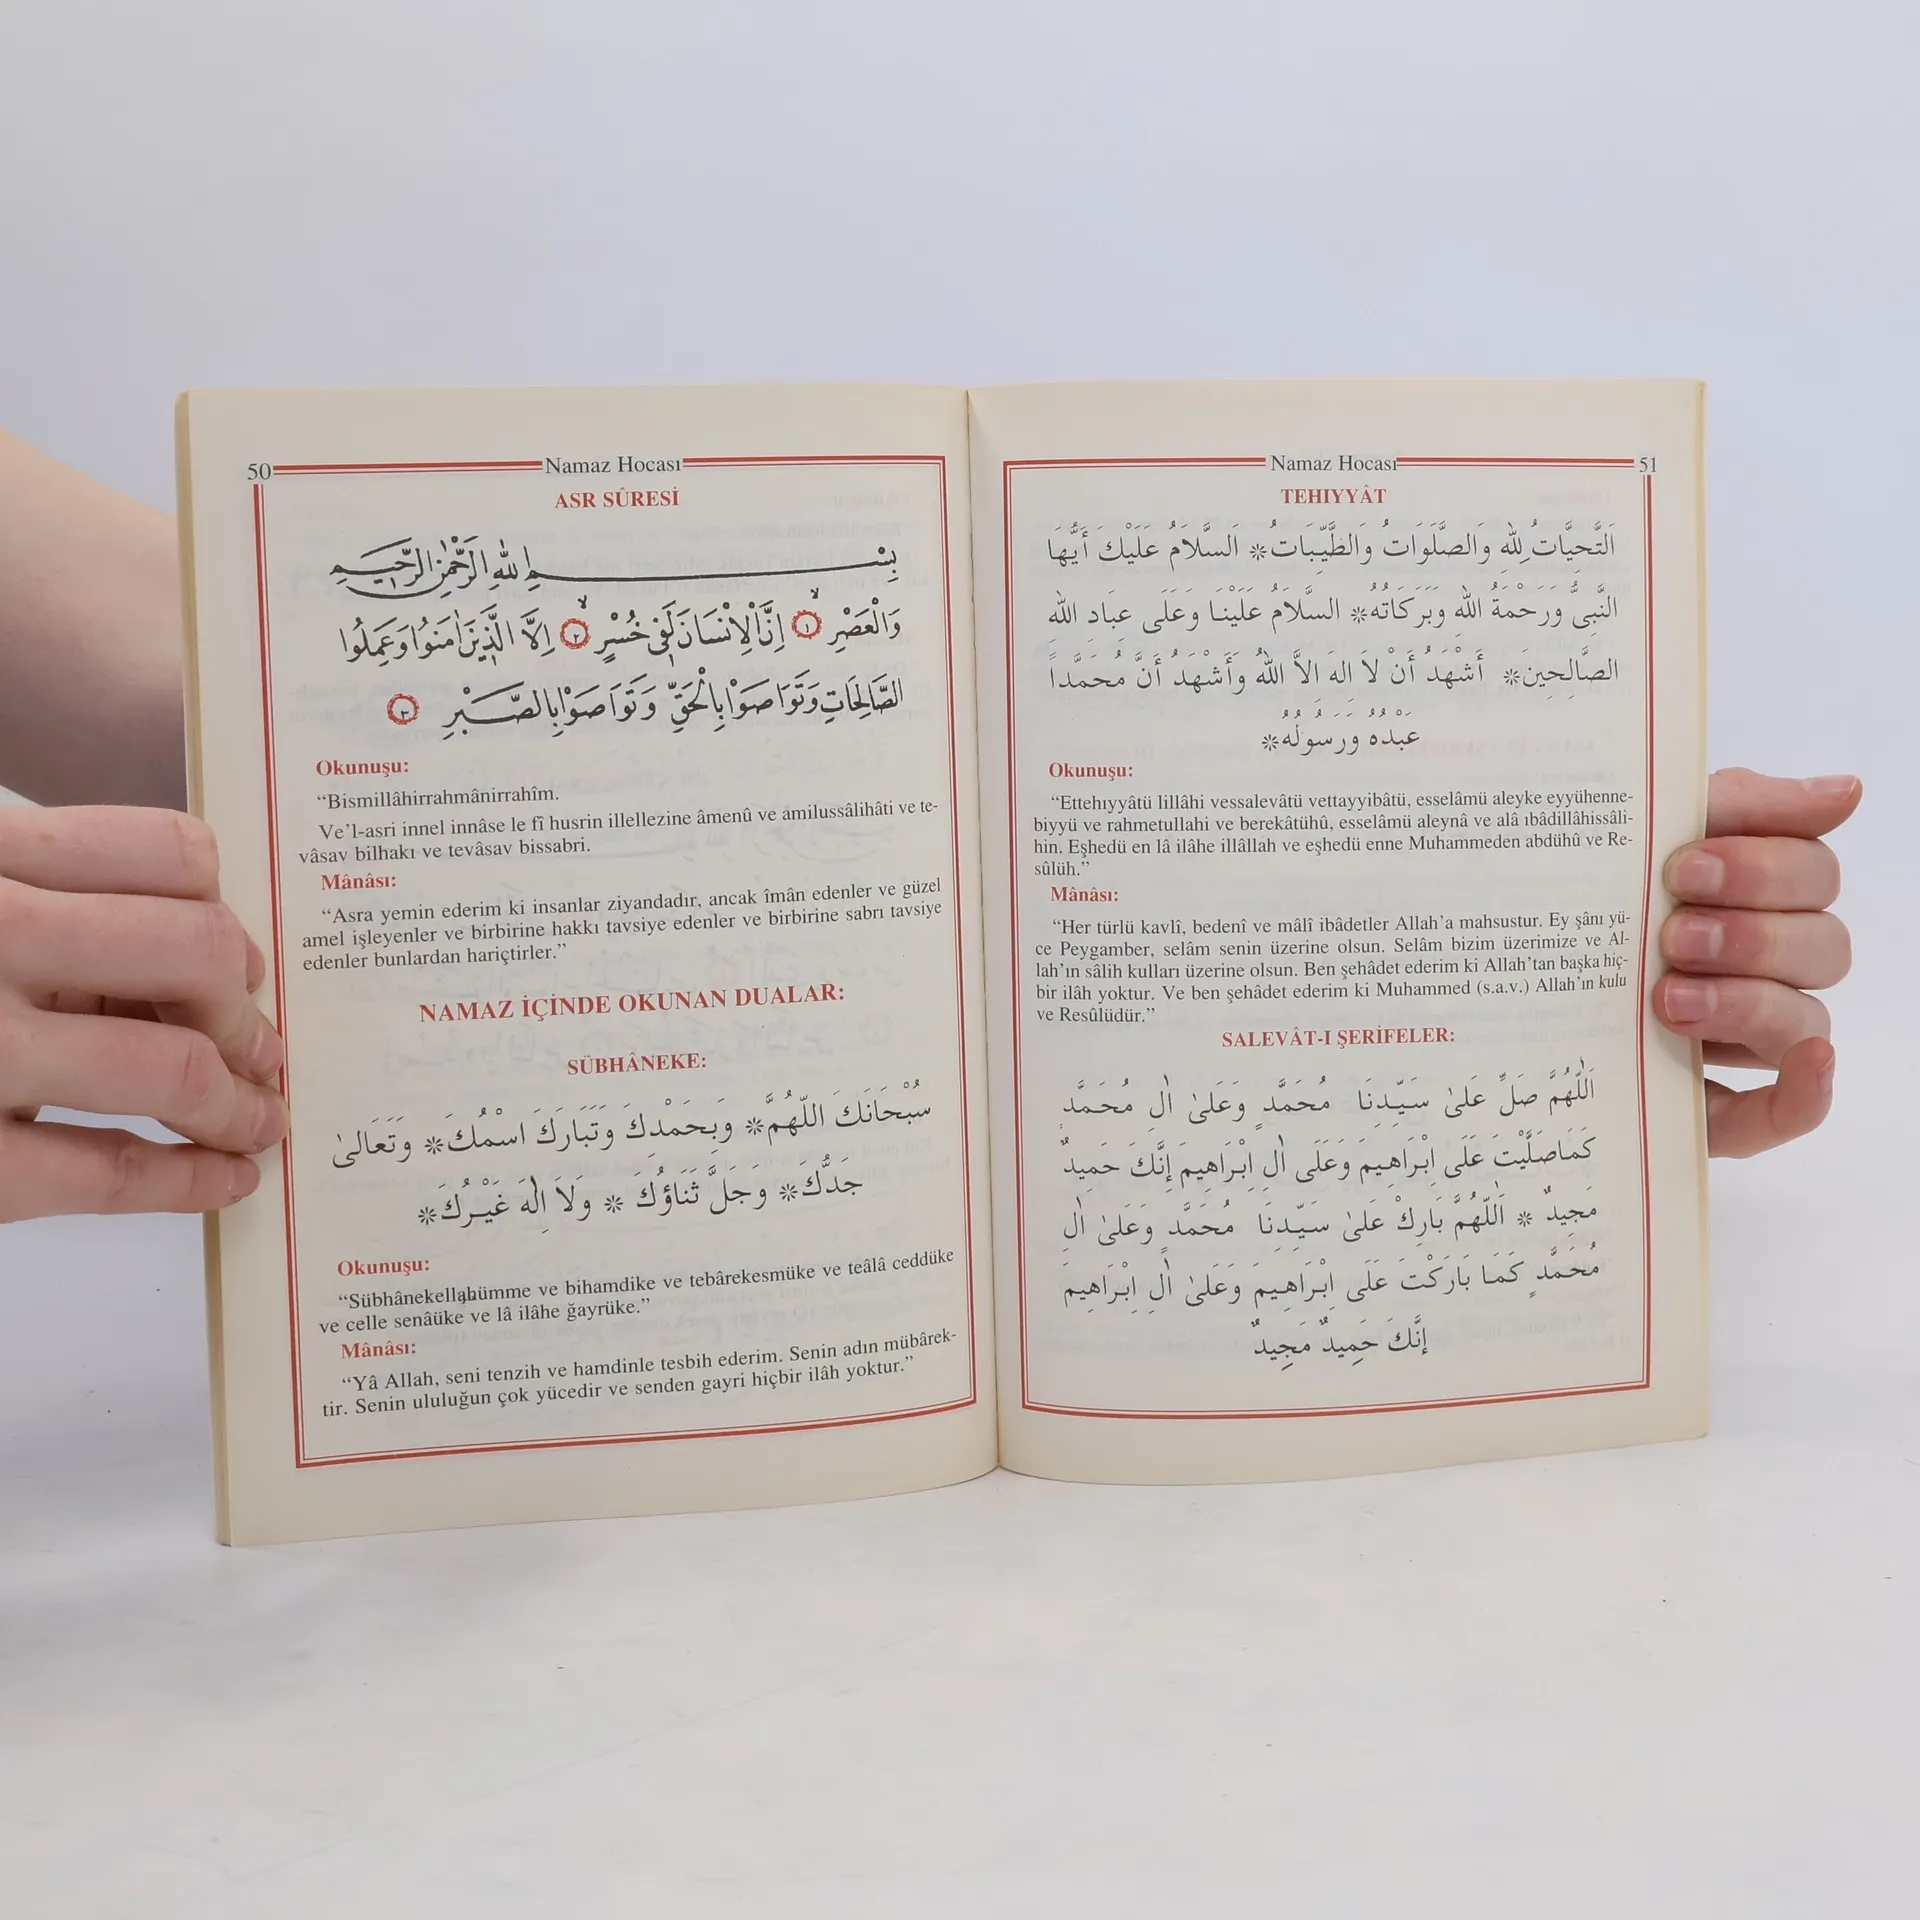 50 Namaz Hocası
ASR SÛRESİ
بِسْمِ اللّٰهِ الرَّحْمٰنِ الرَّحِيمِ
وَالْعَصْرِ ١ اِنَّ الْاِنْسَانَ لَفٖى خُسْرٍ ٢ اِلَّا الَّذٖينَ اٰمَنُوا وَعَمِلُوا
الصَّالِحَاتِ وَتَوَاصَوْا بِالْحَقِّ وَتَوَاصَوْا بِالصَّبْرِ ٣
Okunuşu:
“Bismillâhirrahmânirrahîm.
Ve’l-asri innel innâse le fî husrin illellezine âmenû ve amilussâlihâti ve te-
vâsav bilhakı ve tevâsav bissabri.
Mânâsı:
“Asra yemin ederim ki insanlar ziyandadır, ancak îmân edenler ve güzel
amel işleyenler ve birbirine hakkı tavsiye edenler ve birbirine sabrı tavsiye
edenler bunlardan hariçtirler.”
NAMAZ İÇİNDE OKUNAN DUALAR:
SÜBHÂNEKE:
سُبْحَانَكَ اللّهُمَّ* وَبِحَمْدِكَ وَتَبَارَكَ اسْمُكَ* وَتَعَالىٰ
جَدُّكَ* وَجَلَّ ثَنَاؤُكَ * وَلاَ اِلٰهَ غَيْرُكَ*
Okunuşu:
“Sübhânekellahümme ve bihamdike ve tebârekesmüke ve teâlâ ceddüke
ve celle senâüke ve lâ ilâhe ğayrüke.”
Mânâsı:
“Yâ Allah, seni tenzih ve hamdinle tesbih ederim. Senin adın mübârek-
tir. Senin ululuğun çok yücedir ve senden gayri hiçbir ilâh yoktur.”
Namaz Hocası 51
TEHIYYÂT
اَلتَّحِيَّاتُ لِلّٰهِ وَالصَّلَوَاتُ وَالطَّيِّبَاتُ* اَلسَّلاَمُ عَلَيْكَ أَيُّهَا
النَّبِىُّ وَرَحْمَةُ اللّٰهِ وَبَرَكَاتُهُ* السَّلاَمُ عَلَيْنَا وَعَلَى عِبَادِ اللّٰهِ
الصَّالِحِينَ* أَشْهَدُ أَنْ لاَ اِلهَ اِلاَّ اللّٰهُ وَأَشْهَدُ أَنَّ مُحَمَّداً
عَبْدُهُ وَرَسُولُهُ*
Okunuşu:
“Ettehıyyâtü lillâhi vessalevâtü vettayyibâtü, esselâmü aleyke eyyühenne-
biyyü ve rahmetullahi ve berekâtühû, esselâmü aleynâ ve alâ ıbâdillâhissâli-
hin. Eşhedü en lâ ilâhe illâllah ve eşhedü enne Muhammeden abdühû ve Re-
sûlüh.”
Mânâsı:
“Her türlü kavlî, bedenî ve mâlî ibâdetler Allah’a mahsustur. Ey şânı yü-
ce Peygamber, selâm senin üzerine olsun. Selâm bizim üzerimize ve Al-
lah’ın sâlih kulları üzerine olsun. Ben şehâdet ederim ki Allah’tan başka hiç-
bir ilâh yoktur. Ve ben şehâdet ederim ki Muhammed (s.a.v.) Allah’ın kulu
ve Resûlüdür.”
SALEVÂT-I ŞERİFELER:
اَللّٰهُمَّ صَلِّ عَلىٰ سَيِّدِنَا مُحَمَّدٍ وَعَلىٰ اٰلِ مُحَمَّدٍ
كَمَاصَلَّيْتَ عَلَى اِبْرَاهِيمَ وَعَلَى اٰلِ اِبْرَاهِيمَ إِنَّكَ حَمِيدٌ
مَجِيدٌ * اَللّٰهُمَّ بَارِكْ عَلىٰ سَيِّدِنَا مُحَمَّدٍ وَعَلىٰ اٰلِ
مُحَمَّدٍ كَمَا بَارَكْتَ عَلَى اِبْرَاهِيمَ وَعَلىٰ اٰلِ اِبْرَاهِيمَ
إِنَّكَ حَمِيدٌ مَجِيدٌ